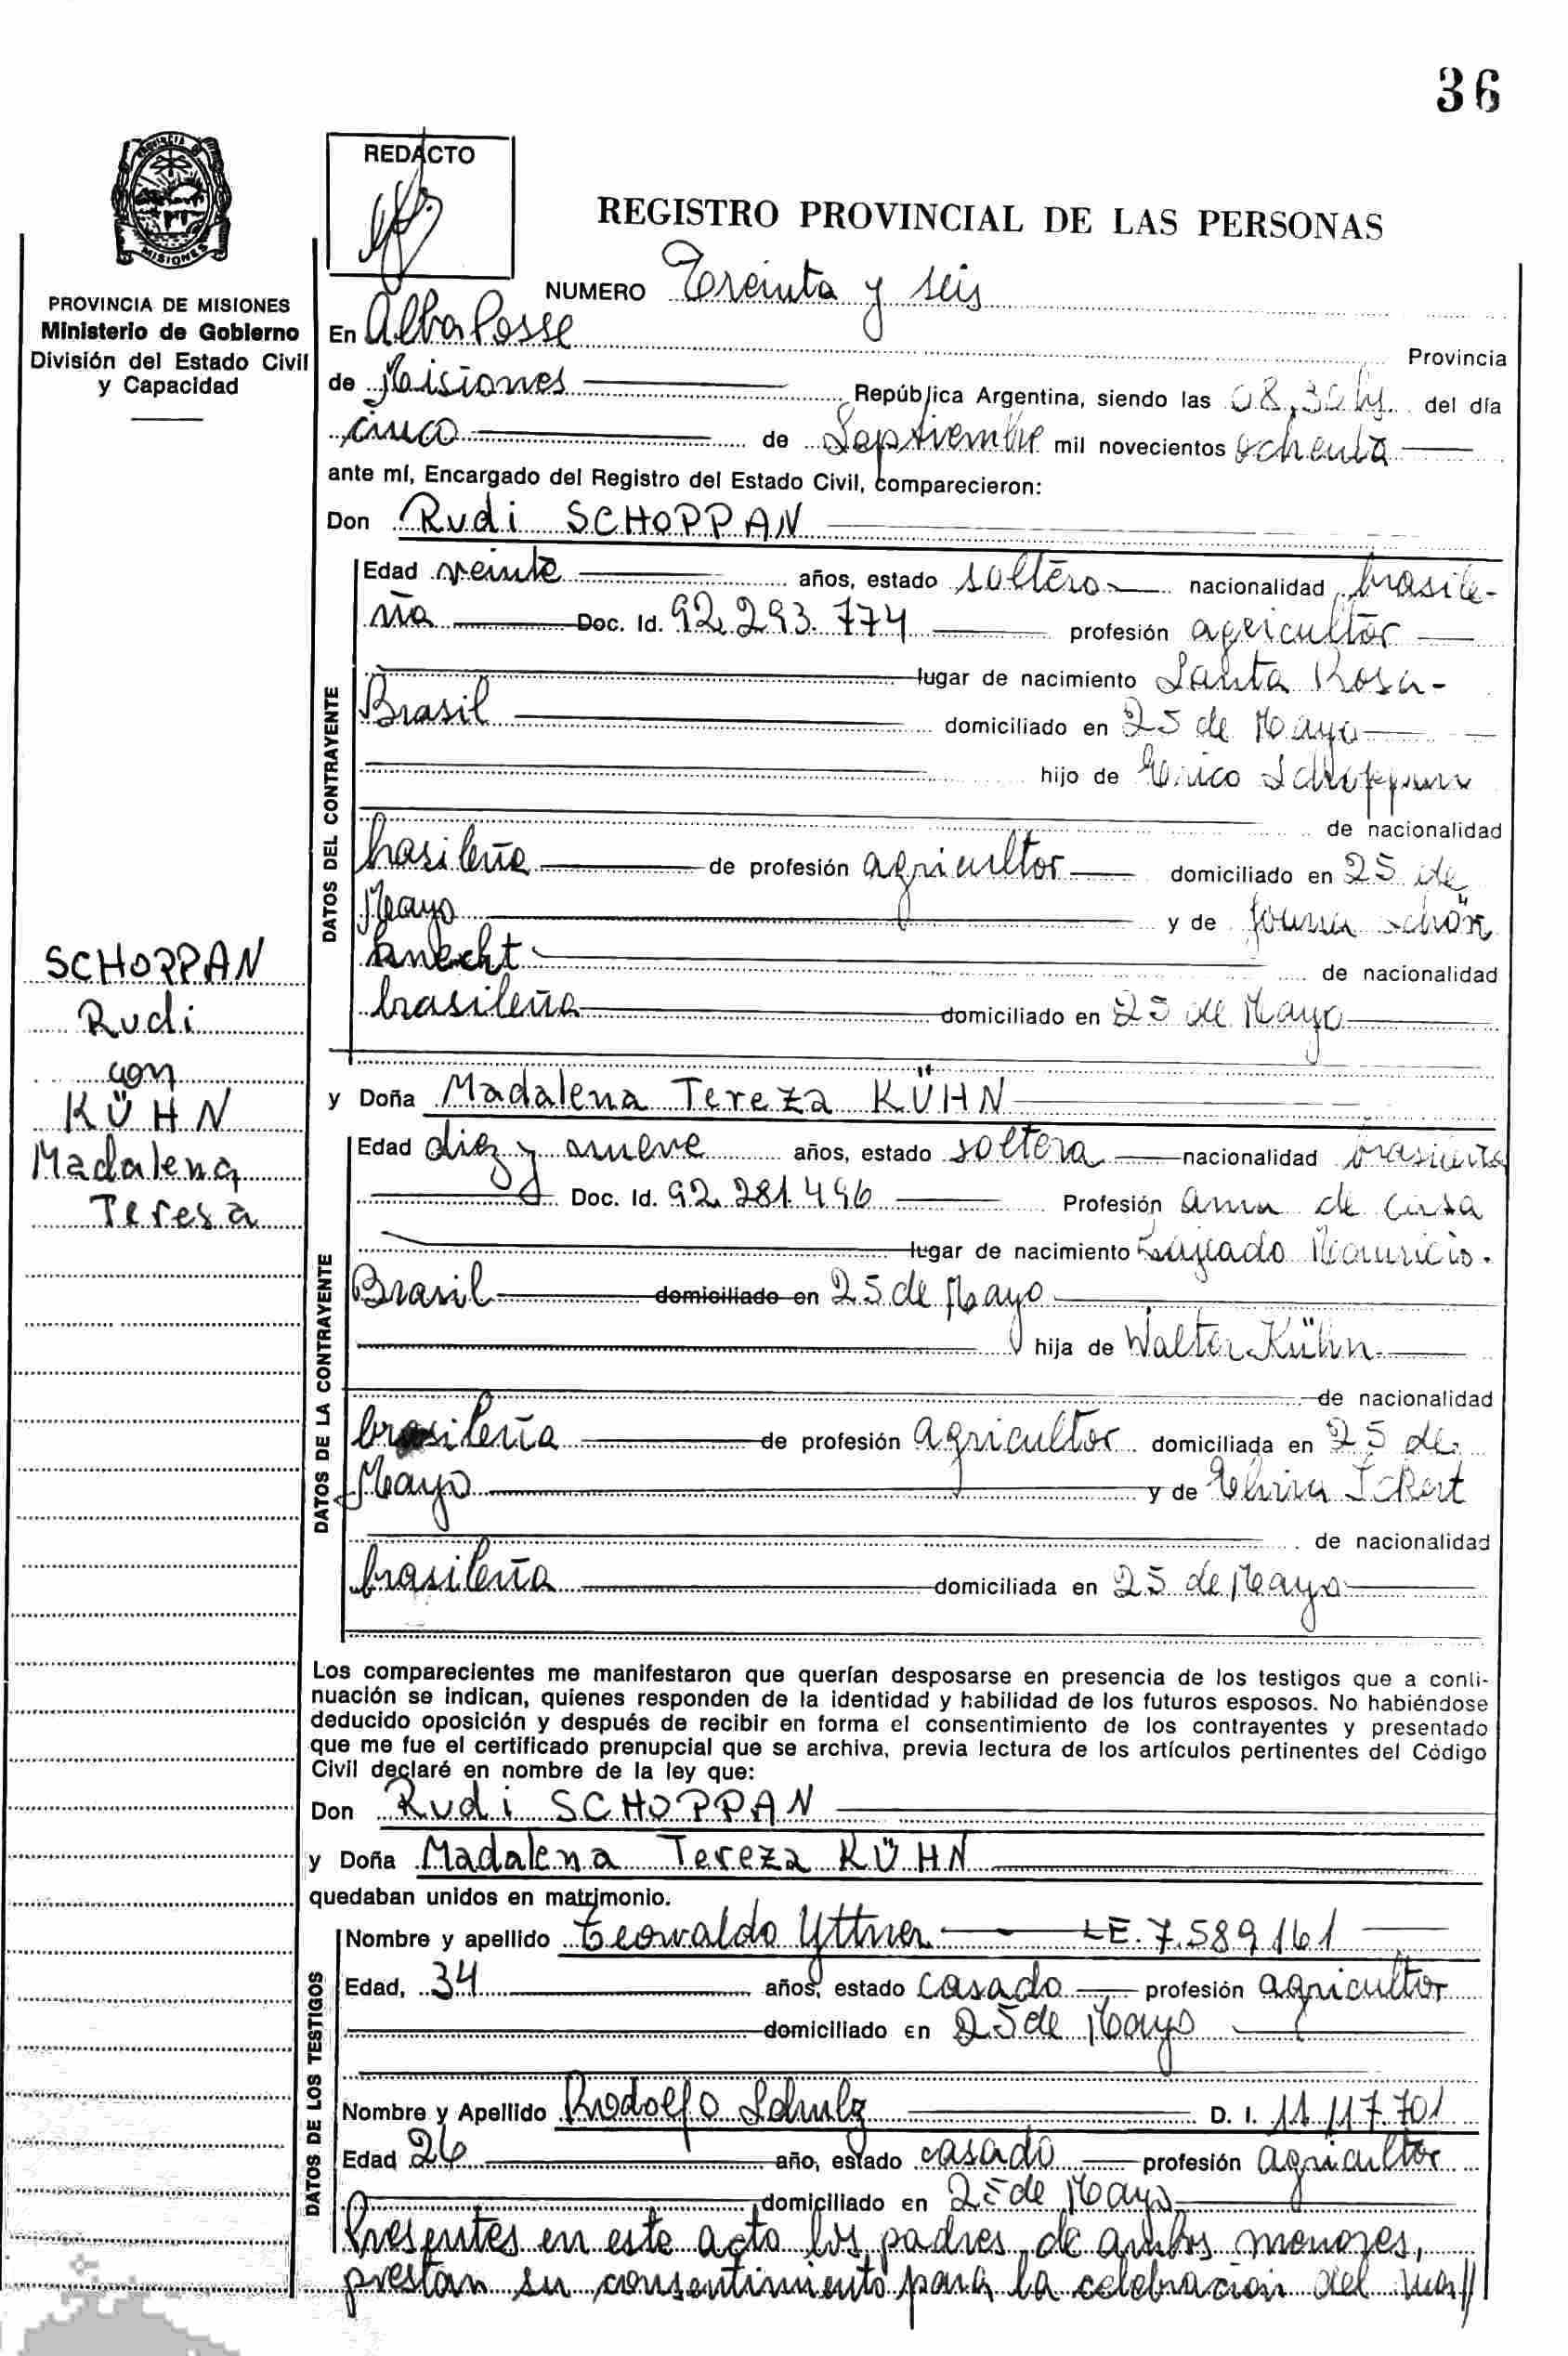 36
REDACTO
REGISTRO PROVINCIAL DE LAS PERSONAS
PROVINCIA DE MISIONES
Ministerio de Gobierno
División del Estado Civil
y Capacidad
NUMERO Treinta y seis
En Alba Posse Provincia
de Misiones República Argentina, siendo las 08,30 hs del día
cinco de Septiembre mil novecientos ochenta
ante mí, Encargado del Registro del Estado Civil, comparecieron:
Don Rudi SCHOPPAN
DATOS DEL CONTRAYENTE
Edad veinte años, estado soltero nacionalidad brasile-
ña Doc. Id. 92.293.774 profesión agricultor
lugar de nacimiento Santa Rosa-
Brasil domiciliado en 25 de Mayo
hijo de Erico Schoppan
de nacionalidad
brasileña de profesión agricultor domiciliado en 25 de
Mayo y de Schön
knecht de nacionalidad
brasileña domiciliado en 25 de Mayo
SCHOPPAN
Rudi
con
KÜHN
Madalena
Teresa
y Doña Madalena Tereza KÜHN
DATOS DE LA CONTRAYENTE
Edad diez y nueve años, estado soltera nacionalidad brasileña
Doc. Id. 92.281.496 Profesión ama de casa
lugar de nacimiento Lajeado Mauricio.
Brasil domiciliado en 25 de Mayo
hija de Walter Kühn
de nacionalidad
brasileña de profesión agricultor domiciliada en 25 de
Mayo y de Elvira Ickert
de nacionalidad
brasileña domiciliada en 25 de Mayo
Los comparecientes me manifestaron que querían desposarse en presencia de los testigos que a conti-
nuación se indican, quienes responden de la identidad y habilidad de los futuros esposos. No habiéndose
deducido oposición y después de recibir en forma el consentimiento de los contrayentes y presentado
que me fue el certificado prenupcial que se archiva, previa lectura de los artículos pertinentes del Código
Civil declaré en nombre de la ley que:
Don Rudi SCHOPPAN
y Doña Madalena Tereza KÜHN
quedaban unidos en matrimonio.
DATOS DE LOS TESTIGOS
Nombre y apellido Teowaldo Yttner LE. 7.589161
Edad, 34 años, estado casado profesión agricultor
domiciliado en 25 de Mayo
Nombre y Apellido Rodolfo Schulz D. I. 11.117.701
Edad 26 año, estado casado profesión agricultor
domiciliado en 25 de Mayo
Presentes en este acto los padres de ambos menores,
prestan su consentimiento para la celebracion del ma//